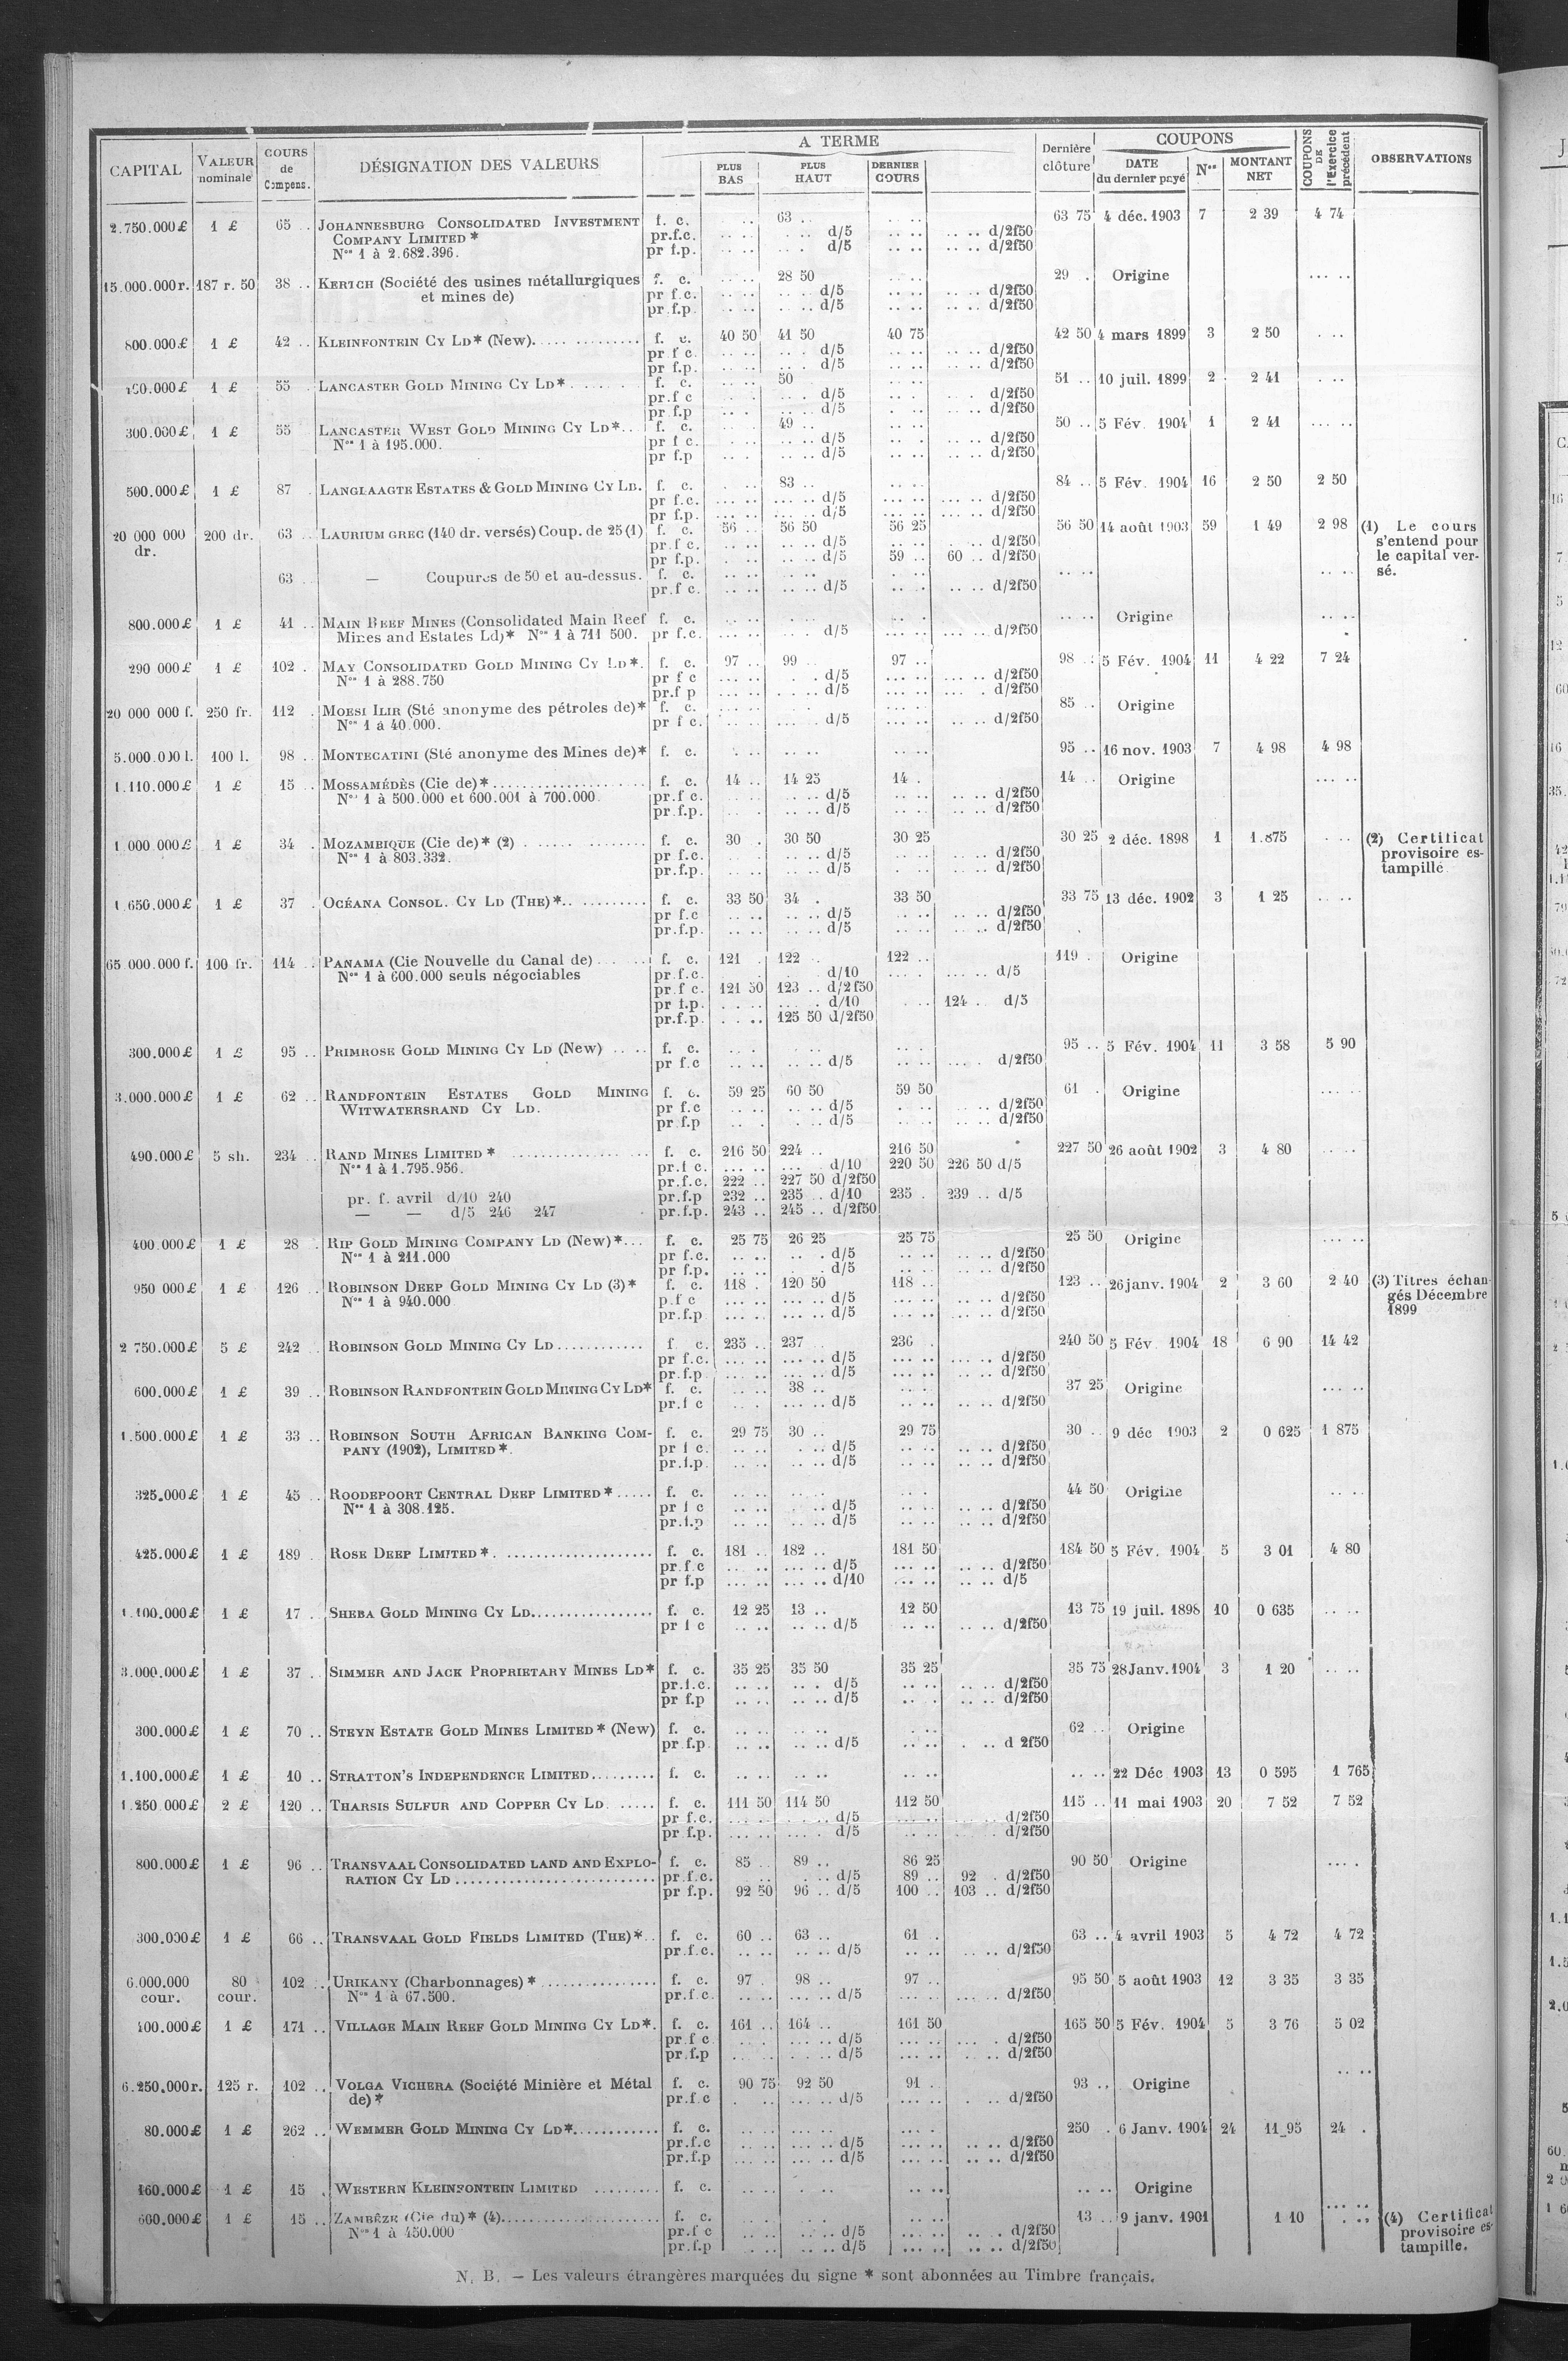 CAPITAL | VALEUR nominale | COURS de Compens. | DÉSIGNATION DES VALEURS | A TERME | PLUS BAS | PLUS HAUT | DERNIER COURS | Dernière clôture | COUPONS | DATE du dernier payé | Nos | MONTANT NET | COUPONS DE l'Exercice précédent | OBSERVATIONS
2.750.000£ 1 £ 65 .. JOHANNESBURG CONSOLIDATED INVESTMENT f. c. .. 63 .. .. .. 63 75 4 déc. 1903 7 2 39 4 74
COMPANY LIMITED * pr.f.c. .. .. .. .. d/5 .. .. .. .. d/2f50
Nos 1 à 2.682.396. pr f.p. .. .. .. d/5 .. .. .. .. d/2f50
15.000.000r. 187 r. 50 38 .. KERTCH (Société des usines métallurgiques f. c. .. .. 28 50 29 . Origine ... ..
et mines de) pr f.c. .. .. .. .. d/5 .. .. .. .. d/2f50
pr.f.p. .. .. .. .. d/5 .. .. .. .. d/2f50
800.000£ 1 £ 42 .. KLEINFONTEIN CY LD* (New). f. c. 40 50 41 50 40 75 42 50 4 mars 1899 3 2 50 . ..
pr f c. .. .. .. . d/5 .. .. .. .. d/2f50
pr f.p. .. .. .. . d/5 .. .. .. .. d/2f50
1 £ 55 .. LANCASTER GOLD MINING CY LD* f. c. 50 51 .. 10 juil. 1899 2 2 41 . ..
pr.f c d/5 d/2f50
pr.f.p d/5 d/2f50
300.000£ 1 £ 55 LANCASTER WEST GOLD MINING CY LD*.. f. c. 49 .. 50 .. 5 Fév. 1904 1 2 41 ... ..
Nos 1 à 195.000. pr f c. d/5 d/2f50
pr f.p d/5 d/2f50
500.000£ 1 £ 87 . LANGLAAGTE ESTATES & GOLD MINING CY LD. f. c. 83 .. 84 .. 5 Fév. 1904 16 2 50 2 50
pr f.c. ... .. ... .. d/5 ... .. ... .. d/2f50
pr f.p. ... .. ... .. d/5 ... .. ... .. d/2f50
20 000 000 dr. 200 dr. 63 .. LAURIUM GREC (140 dr. versés) Coup. de 25 (1) f. c. 56 .. 56 50 56 25 56 50 14 août 1903 59 1 49 2 98 (1) Le cours s'entend pour le capital versé.
pr.f c. .. .. .. .. d/5 .. .. . .. d/2f50
pr f.p. .. .. .. d/5 59 .. 60 .. d/2f50
63 .. — Coupures de 50 et au-dessus. f. c. .. .. .. ..
pr.f c. .. .. .. .. d/5 .. . .. .. d/2f50
800.000£ 1 £ 41 .. MAIN REEF MINES (Consolidated Main Reef f. c. Origine
Mines and Estates Ld)* Nos 1 à 711 500. pr f.c. ... .. . . d/5 ... .. ... .. d/2f50
290 000£ 1 £ 102 . MAY CONSOLIDATED GOLD MINING CY LD*. f. c. 97 .. 99 .. 97 .. 98 .. 5 Fév. 1904 11 4 22 7 24
Nos 1 à 288.750 pr f c d/5 d/2f50
pr.f p d/5 d/2f50
20 000 000 f. 250 fr. 112 . MOESI ILIR (Sté anonyme des pétroles de)* f. c. 85 .. Origine
Nos 1 à 40.000. pr f c. d/5 d/2f50
5.000.000 l. 100 l. 98 .. MONTECATINI (Sté anonyme des Mines de)* f. c. 95 .. 16 nov. 1903 7 4 98 4 98
1.110.000£ 1 £ 15 .. MOSSAMÉDÈS (Cie de)* f. c. 14 .. 14 25 14 . 14 .. Origine ... ..
Nos 1 à 500.000 et 600.001 à 700.000. pr.f c. d/5 d/2f50
pr.f.p. d/5 d/2f50
1 000 000£ 1 £ 34 . MOZAMBIQUE (Cie de)* (2) f. c. 30 . 30 50 30 25 30 25 2 déc. 1898 1 1.875 . .. (2) Certificat provisoire estampillé.
Nos 1 à 803.332. pr f.c. d/5 d/2f50
pr.f.p. d/5 d/2f50
1.650.000£ 1 £ 37 . OCÉANA CONSOL. CY LD (THE)*.. f. c. 33 50 34 . 33 50 33 75 13 déc. 1902 3 1 25
pr f.c d/5 d/2f50
pr.f.p. d/5 d/2f50
65 000.000 f. 100 fr. 114 .. PANAMA (Cie Nouvelle du Canal de) f. c. 121 . 122 .. 122 .. 119 . Origine
Nos 1 à 600.000 seuls négociables pr.f.c. d/10 d/5
pr.f c. 121 50 123 .. d/2f50
pr f.p. d/10 124 .. d/5
pr.f.p. 125 50 d/2f50
300.000£ 1 £ 95 .. PRIMROSE GOLD MINING CY LD (New) f. c. 95 .. 5 Fév. 1904 11 3 58 5 90
pr f.c d/5 d/2f50
3.000.000£ 1 £ 62 .. RANDFONTEIN ESTATES GOLD MINING f. c. 59 25 60 50 59 50 61 . Origine
WITWATERSRAND CY LD. pr f.c d/5 d/2f50
pr f.p d/5 d/2f50
490.000£ 5 sh. 234 .. RAND MINES LIMITED * f. c. 216 50 224 .. 216 50 227 50 26 août 1902 3 4 80
Nos 1 à 1.795.956. pr.f c. d/10 220 50 226 50 d/5
pr.f.c. 222 .. 227 50 d/2f50
pr. f. avril d/10 240 pr.f.p 232 .. 235 .. d/10 235 . 239 .. d/5
— — d/5 246 247 pr.f.p. 243 .. 245 .. d/2f50
400.000£ 1 £ 28 . RIP GOLD MINING COMPANY LD (New)*... f. c. 25 75 26 25 25 75 25 50 Origine ... ..
Nos 1 à 211.000 pr f.c. d/5 d/2f50
pr f.p. d/5 d/2f50
950 000£ 1 £ 126 .. ROBINSON DEEP GOLD MINING CY LD (3)* f. c. 118 . 120 50 118 .. 123 .. 26 janv. 1904 2 3 60 2 40 (3) Titres échangés Décembre 1899
Nos 1 à 940.000 p.f c d/5 d/2f50
pr.f.p d/5 d/2f50
2 750.000£ 5 £ 242 .. ROBINSON GOLD MINING CY LD f c. 235 .. 237 .. 236 . 240 50 5 Fév 1904 18 6 90 14 42
pr f.c. d/5 d/2f50
pr.f.p d/5 d/2f50
600.000£ 1 £ 39 .. ROBINSON RANDFONTEIN GOLD MINING CY LD* f. c. 38 .. 37 25 Origine ... ..
pr.f c d/5 d/2f50
1.500.000£ 1 £ 33 .. ROBINSON SOUTH AFRICAN BANKING COM- f. c. 29 75 30 .. 29 75 30 .. 9 déc 1903 2 0 625 1 875
PANY (1902), LIMITED *. pr f c. d/5 d/2f50
pr.f.p. d/5 d/2f50
325.000£ 1 £ 45 .. ROODEPOORT CENTRAL DEEP LIMITED * f. c. 44 50 Origine
Nos 1 à 308.125. pr f c d/5 d/2f50
pr.f.p d/5 d/2f50
425.000£ 1 £ 189 . ROSE DEEP LIMITED * f. c. 181 .. 182 .. 181 50 184 50 5 Fév. 1904 5 3 01 4 80
pr.f.c d/5 d/2f50
pr f.p d/10 d/5
1.100.000£ 1 £ 17 .. SHEBA GOLD MINING CY LD f. c. 12 25 13 .. 12 50 13 75 19 juil. 1898 10 0 635
pr f c d/5 d/2f50
3.000.000£ 1 £ 37 . SIMMER AND JACK PROPRIETARY MINES LD* f. c. 35 25 35 50 35 25 35 75 28 Janv. 1904 3 1 20
pr.f.c. d/5 d/2f50
pr f.p d/5 d/2f50
300.000£ 1 £ 70 .. STEYN ESTATE GOLD MINES LIMITED * (New) f. c. 62 .. Origine
pr.f.p. d/5 d 2f50
1.100.000£ 1 £ 10 .. STRATTON'S INDEPENDENCE LIMITED f. c. 22 Déc 1903 13 0 595 1 765
1.250 000£ 2 £ 120 .. THARSIS SULFUR AND COPPER CY LD f. c. 111 50 114 50 112 50 115 .. 11 mai 1903 20 7 52 7 52
pr f.c. d/5 d/2f50
pr f.p. d/5 d/2f50
800.000£ 1 £ 96 .. TRANSVAAL CONSOLIDATED LAND AND EXPLO- f. c. 85 .. 89 .. 86 25 90 50 Origine
RATION CY LD pr.f.c. d/5 89 .. 92 . d/2f50
pr f.p. 92 50 96 .. d/5 100 .. 103 .. d/2f50
300.000£ 1 £ 66 .. TRANSVAAL GOLD FIELDS LIMITED (THE)*.. f. c. 60 .. 63 .. 61 . 63 .. 4 avril 1903 5 4 72 4 72
pr.f.c. d/5 d/2f50
6.000.000 cour. 80 cour. 102 .. URIKANY (Charbonnages) * f. c. 97 . 98 .. 97 .. 95 50 5 août 1903 12 3 35 3 35
Nos 1 à 67.500. pr.f.c. d/5 d/2f50
400.000£ 1 £ 171 .. VILLAGE MAIN REEF GOLD MINING CY LD*. f. c. 161 .. 164 .. 161 50 165 50 5 Fév. 1904 5 3 76 5 02
pr.f c d/5 d/2f50
pr.f.p d/5 d/2f50
6.250.000r. 125 r. 102 .. VOLGA VICHERA (Société Minière et Métal f. c. 90 75 92 50 91 .. 93 .. Origine
de)* pr.f.c d/5 d/2f50
80.000£ 1 £ 262 .. WEMMER GOLD MINING CY LD* f. c. 250 . 6 Janv. 1904 24 11 95 24 .
pr.f.c d/5 d/2f50
pr.f.p d/5 d/2f50
160.000£ 1 £ 15 . WESTERN KLEINFONTEIN LIMITED f. c. Origine
600.000£ 1 £ 15 .. ZAMBÈZE (Cie du)* (4) f. c. 13 .. 9 janv. 1901 1 10 (4) Certificat provisoire estampillé.
Nos 1 à 450.000 pr.f c d/5 d/2f50
pr.f.p d/5 d/2f50
N. B. — Les valeurs étrangères marquées du signe * sont abonnées au Timbre français.